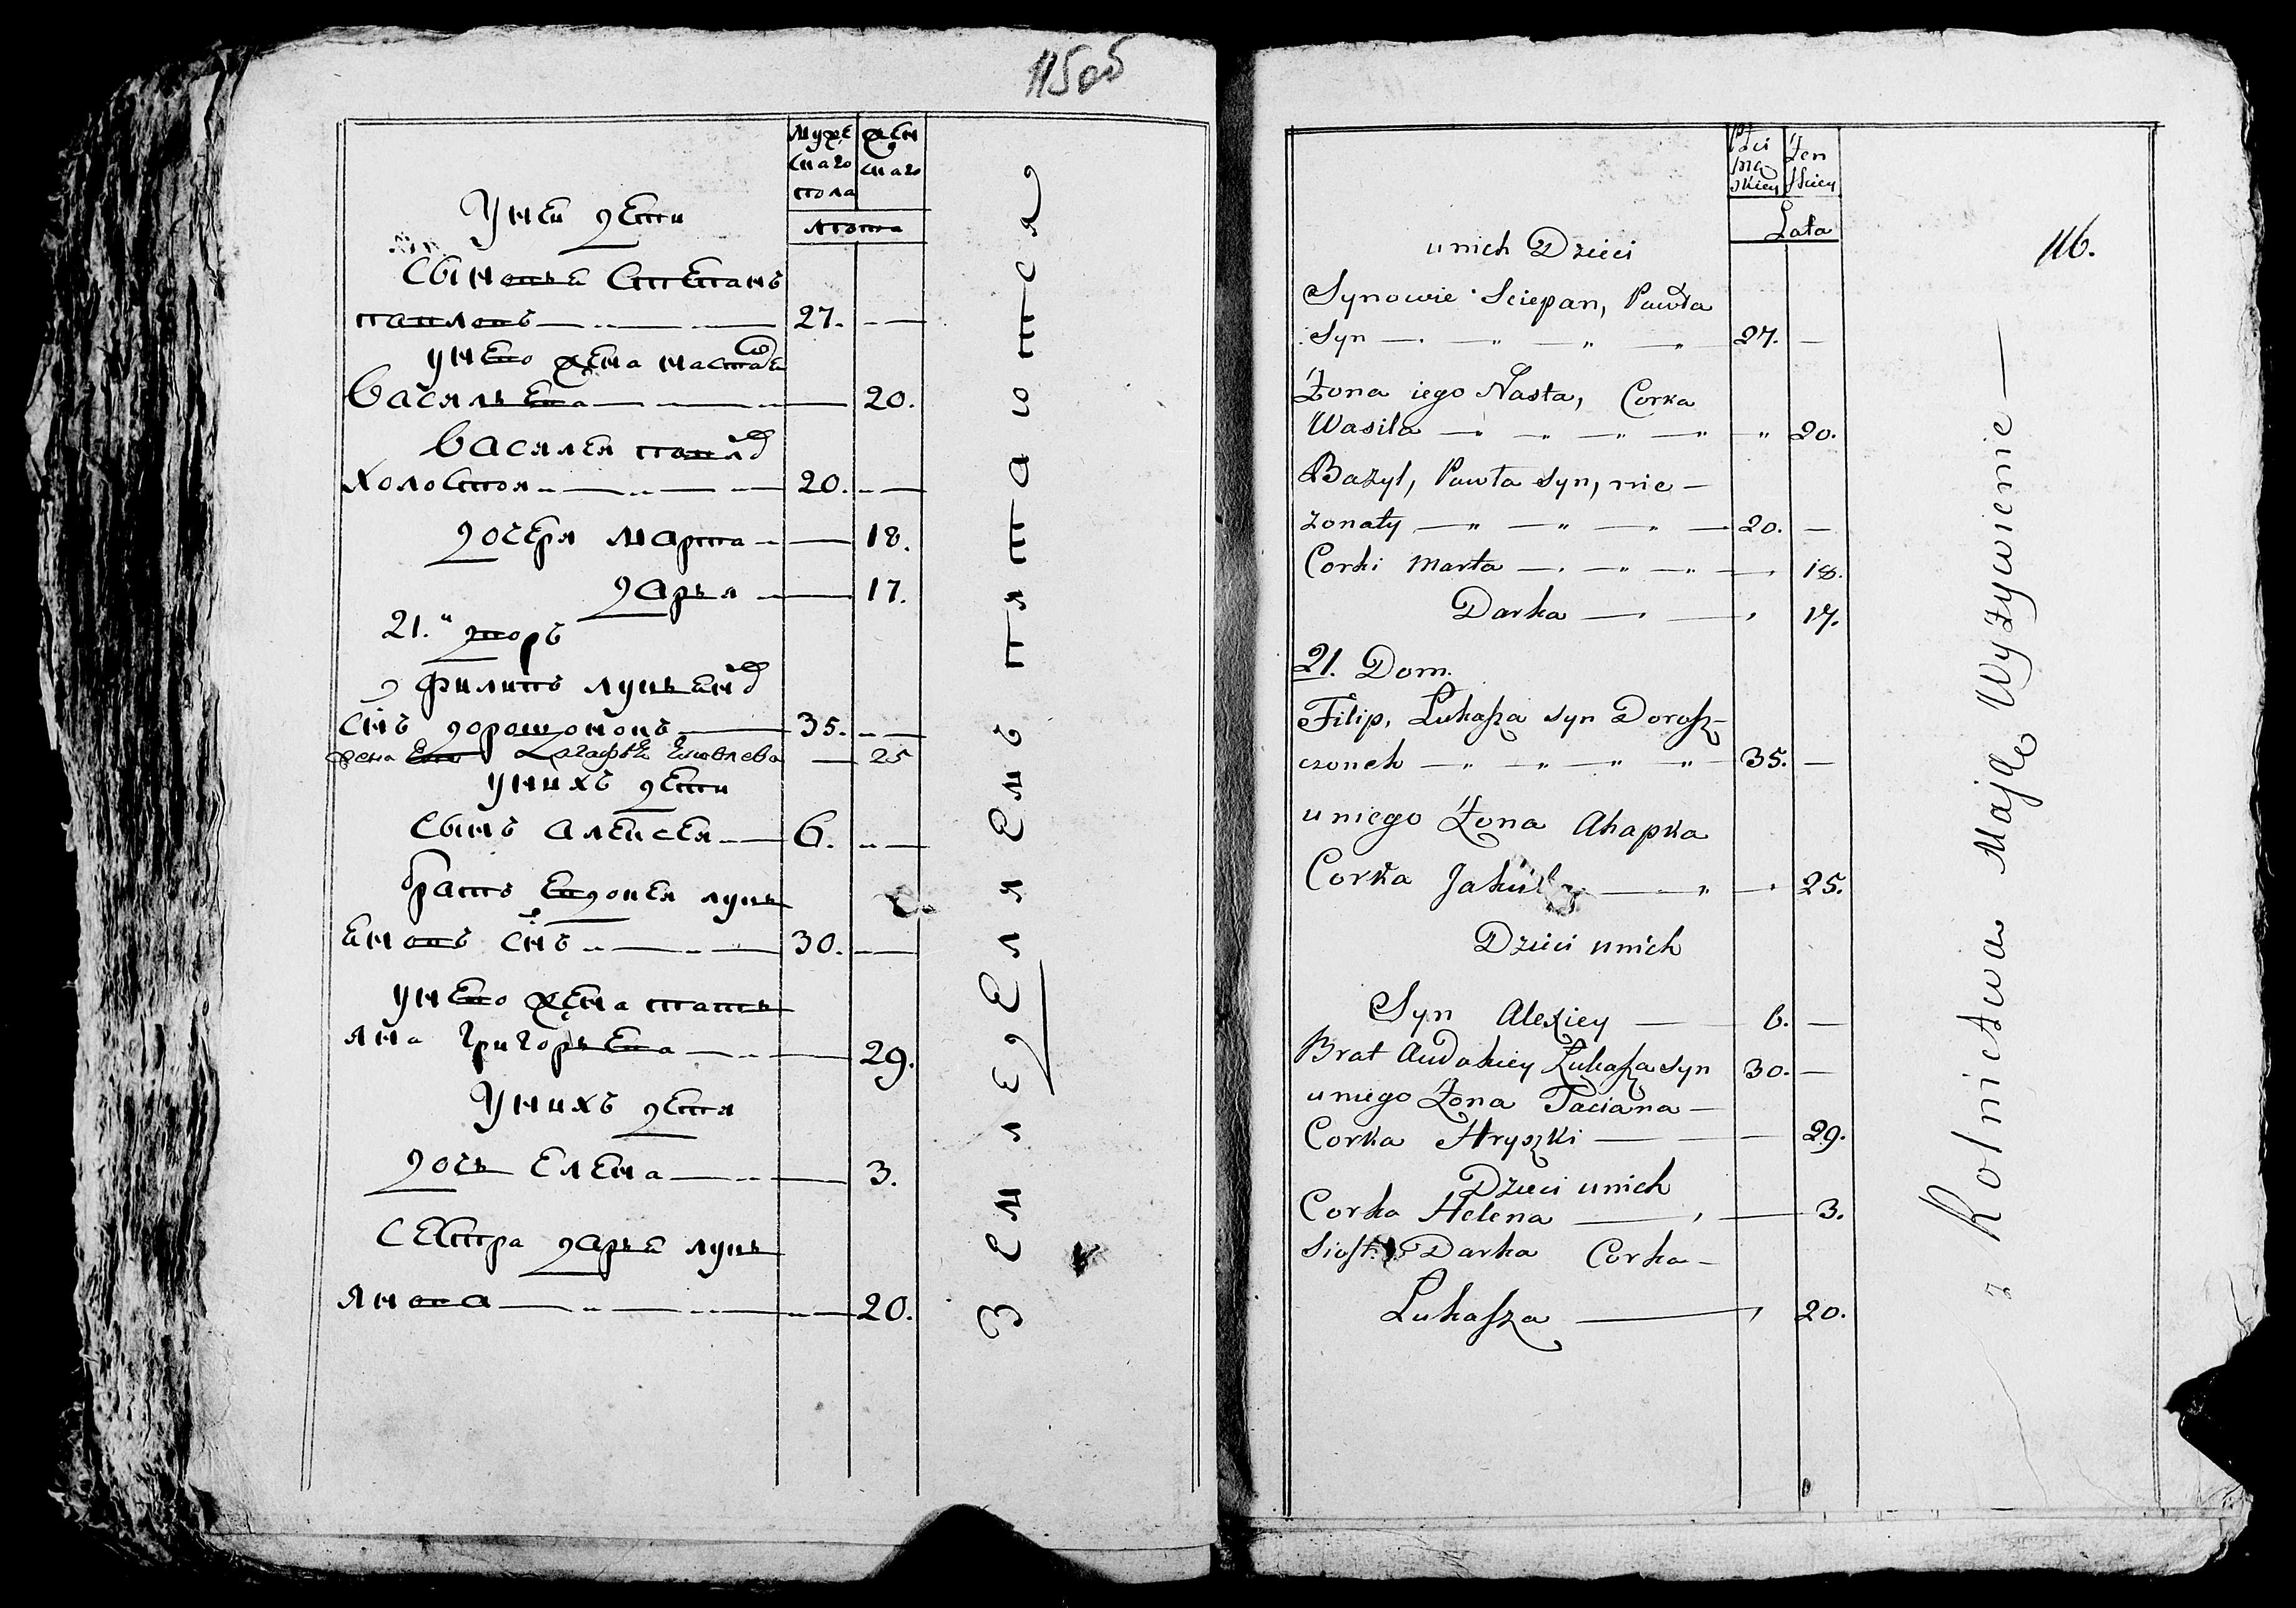 115об
Муже
скаго
пола
жен
скаго
Лѣта
У ней дети
Сыновья Степанъ
павловъ 27.
у нево жена настас
васильева 20.
василей павлд
холостой 20.
дочеря марта 18.
дарья 17.
21. дворъ
филипъ лукьянд
снъ дорошонокъ 35.
жена Ево Агафья Яковлева 25
у нихъ дети
сынъ алексей 6.
братъ Евдокей лукь
яновъ снъ 30.
у нево жена тать
яна григорьева 29.
у нихъ детя
дочь Елена 3.
сестра дарья лукь
янова 20.
Земледелиемъ питаютса
116.
Płci
mę
skiey
Żen
skiey
Lata
u nich Dzieci
Synowie Sciepan, Pawła
Syn 27.
Żona iego Nasta, Corka
Wasila 20.
Bazyl, Pawła Syn, nie-
zonaty 20.
Corki Marta 18.
Darka 17.
21. Dom.
Filip, Łukasza syn Dorosz-
czonek 35.
u niego Żona Ahapka
Corka Jakuba 25.
Dzieci u nich
Syn Alexiey 6.
Brat Audokiey Łukasza syn 30.
u niego Żona Taciana
Corka Hryszki 29.
Dzieci u nich
Corka Helena 3.
Siost. Darka Corka
Łukasza 20.
z Rolnictwa Mają Wyżywienie